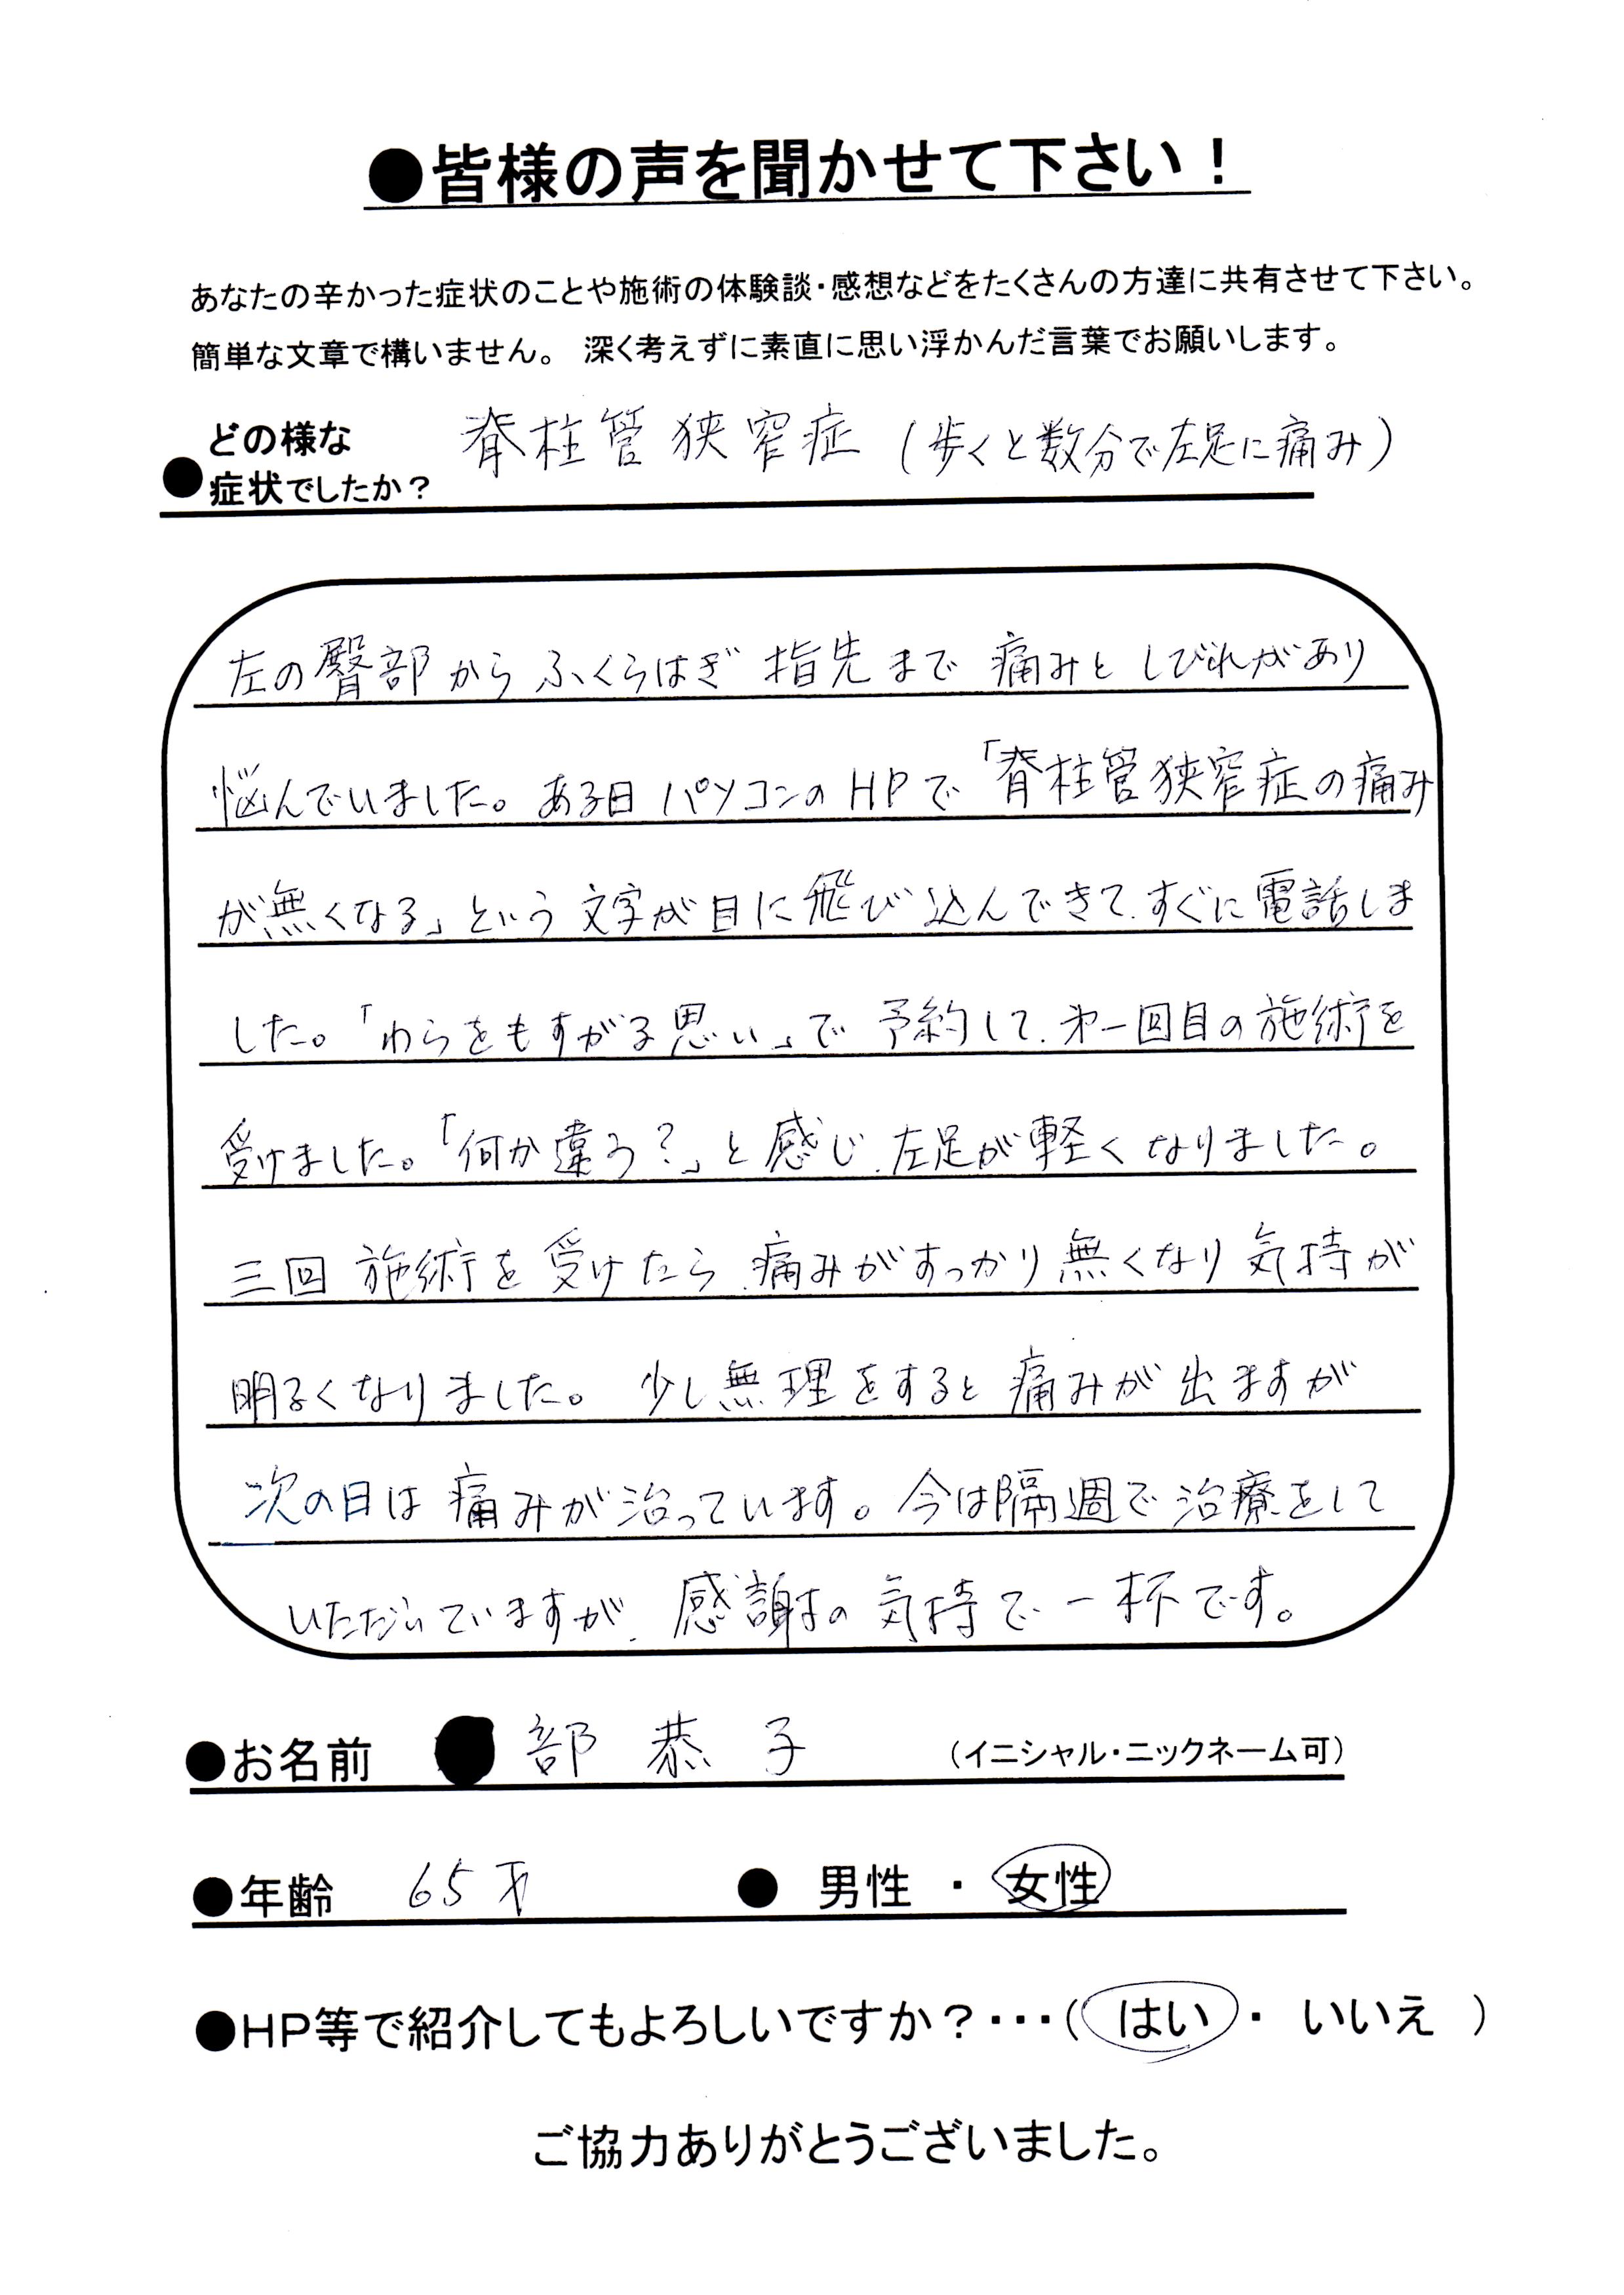 ●皆様の声を聞かせて下さい！
あなたの辛かった症状のことや施術の体験談・感想などをたくさんの方達に共有させて下さい。
簡単な文章で構いません。 深く考えずに素直に思い浮かんだ言葉でお願いします。
●どの様な
症状でしたか？ 脊柱管狭窄症（歩くと数分で左足に痛み）
左の臀部からふくらはぎ 指先まで 痛みと しびれがあり
悩んでいました。ある日 パソコンのHPで「脊柱管狭窄症の痛み
が無くなる」という 文字が目に飛び込んできて、すぐに電話しま
した。「わらをもすがる思い」で 予約して、第一回目の施術を
受けました。「何か違う？」と感じ、左足が軽くなりました。
三回 施術を受けたら、痛みがすっかり無くなり 気持が
明るくなりました。 少し無理をすると 痛みが出ますが
次の日は 痛みが治っています。今は隔週で 治療をして
いただいていますが、感謝の 気持で 一杯です。
●お名前 部 恭 子 （イニシャル・ニックネーム可）
●年齢 65才 ● 男性 ・ 女性
●HP等で紹介してもよろしいですか？・・・（ はい ・ いいえ ）
ご協力ありがとうございました。